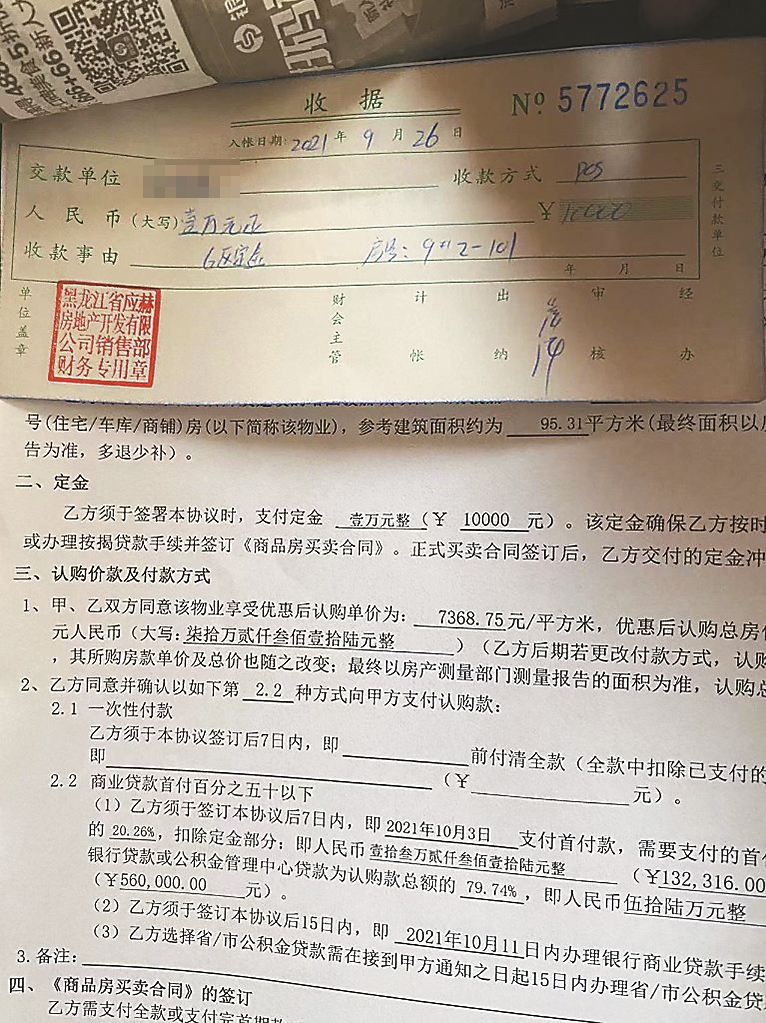 收 据
Nº 5772625
入帐日期: 2021 年 9 月 26 日
交款单位 收款方式 pos
人民币(大写) 壹万元正 ¥ 10000
收款事由 6区定金 房号: 9#2-101
年 月 日
三交付款单位
单位盖章
黑龙江省应赫
房地产开发有限
公司销售部
财务专用章
财会主管
计 帐
出 纳
审 核
经 办
号(住宅/车库/商铺)房(以下简称该物业), 参考建筑面积约为 95.31平方米(最终面积以
告为准, 多退少补)。
二、定金
乙方须于签署本协议时, 支付定金 壹万元整 (¥ 10000 元)。该定金确保乙方按时
或办理按揭贷款手续并签订《商品房买卖合同》。正式买卖合同签订后, 乙方交付的定金冲
三、认购价款及付款方式
1、甲、乙双方同意该物业享受优惠后认购单价为: 7368.75元/平方米, 优惠后认购总房
元人民币(大写: 柒拾万贰仟叁佰壹拾陆元整 )(乙方后期若更改付款方式, 认购
, 其所购房款单价及总价也随之改变; 最终以房产测量部门测量报告的面积为准, 认购总
2、乙方同意并确认以如下第 2.2 种方式向甲方支付认购款:
2.1 一次性付款
乙方须于本协议签订后7日内, 即 前付清全款(全款中扣除已支付的
即 (¥ 元)。
2.2 商业贷款首付百分之五十以下
(1)乙方须于签订本协议后7日内, 即 2021年10月3日 支付首付款, 需要支付的首
的 20.26%, 扣除定金部分; 即人民币 壹拾叁万贰仟叁佰壹拾陆元整 (¥132,316.00
银行贷款或公积金管理中心贷款为认购款总额的 79.74%, 即人民币伍拾陆万元整
(¥560,000.00 元)。
(2)乙方须于签订本协议后15日内, 即 2021年10月11日内办理银行商业贷款手续
(3)乙方选择省/市公积金贷款需在接到甲方通知之日起15日内办理省/市公积金贷
3.备注:
四、《商品房买卖合同》的签订
乙方需支付全款或支付完首期款